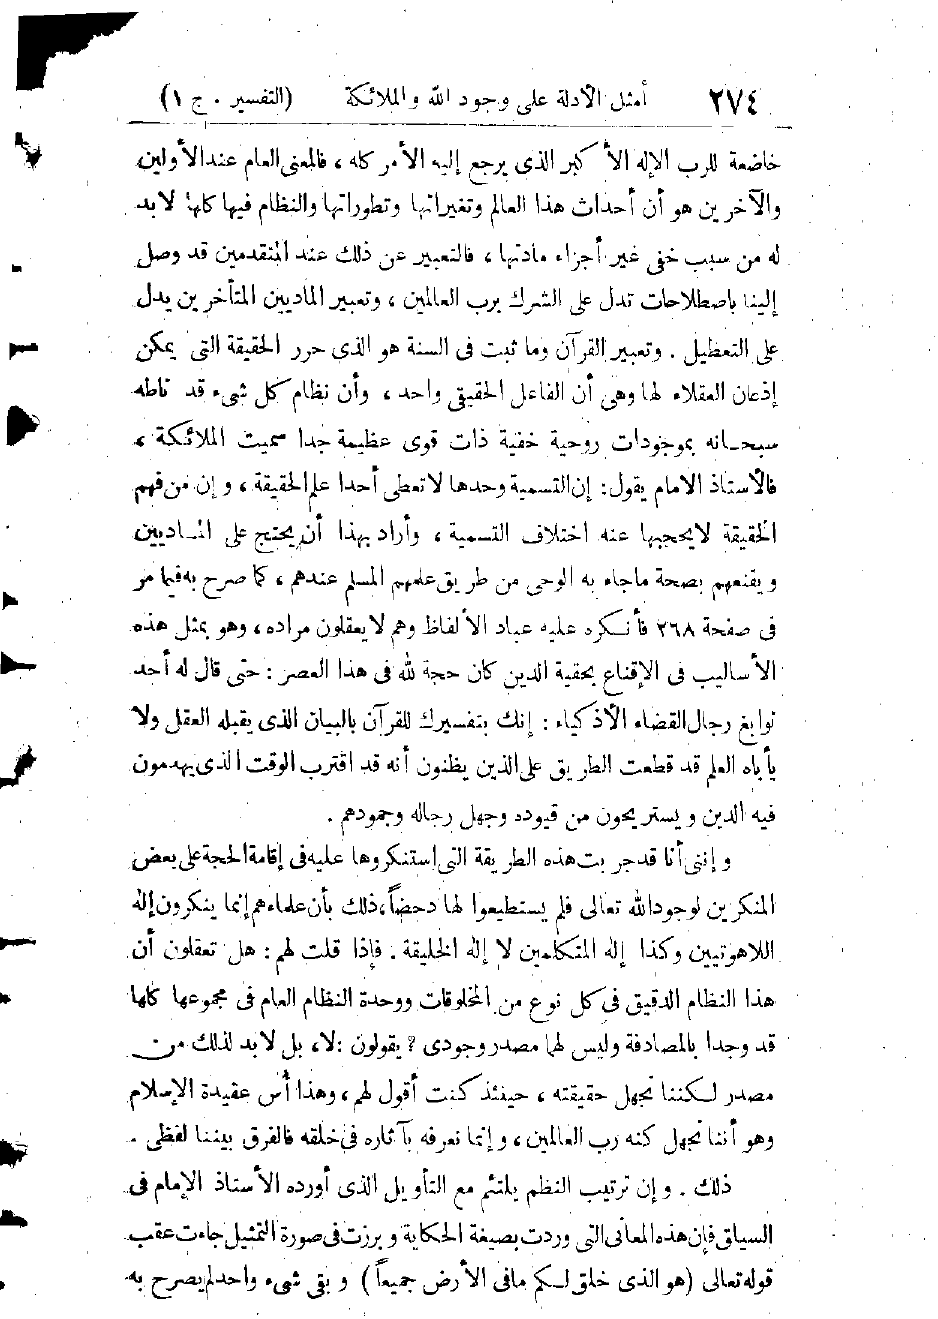 ٢٧٤ أمثل الأدلة على وجود الله والملائكة (التفسير . ج ١)
خاضعة للرب الإله الأكبر الذى يرجع إليه الأمر كله ، فالمعنى العام عند الأولين
والآخرين هو أن أحداث هذا العالم وتغيراتها وتطوراتها والنظام فيها كلها لابد
له من سبب خفى غير أجزاء مادتها ، فالتعبير عن ذلك عند المتقدمين قد وصل
إلينا باصطلاحات تدل على الشرك برب العالمين ، وتعبير الماديين المتأخرين يدل
على التعطيل . وتعبير القرآن وما ثبت فى السنة هو الذى حرر الحقيقة التى يمكن
إذعان العقلاء لها وهى أن الفاعل الحقيقى واحد ، وأن نظام كل شىء قد ناطه
سبحانه بموجودات روحية خفية ذات قوى عظيمة جدا سميت الملائكة ،
فالأستاذ الامام يقول : إن التسمية وحدها لا تعطى أحدا علم الحقيقة ، وإن من فهم
الحقيقة لا يحجبها عنه اختلاف التسمية ، وأراد بهذا أن يحتج على الماديين
ويقنعهم بصحة ما جاء به الوحى من طريق علمهم المسلم عندهم ، كما صرح به فيما مر
فى صفحة ٢٦٨ فأنكره عليه عباد الألفاظ وهم لا يعقلون مراده ، وهو بمثل هذه
الأساليب فى الإقناع بحقية الدين كان حجة لله فى هذا العصر : حتى قال له أحد
نوابغ رجال القضاء الأذكياء : إنك بتفسيرك للقرآن بالبيان الذى يقبله العقل ولا
يأباه العلم قد قطعت الطريق على الذين يظنون أنه قد اقترب الوقت الذى يهدمون
فيه الدين ويستريحون من قيوده وجهل رجاله وجمودهم .
وإننى أنا قد جربت هذه الطريقة التى استنكروها عليه فى إقامة الحجة على بعض
المنكرين لوجود الله تعالى فلم يستطيعوا لها دحضاً ، ذلك بأن علماءهم إنما ينكرون إله
اللاهوتيين وكذا إله المتكلمين لا إله الخليقة . فإذا قلت لهم : هل تعقلون أن
هذا النظام الدقيق فى كل نوع من المخلوقات ووحدة النظام العام فى مجموعها كلها
قد وجدا بالمصادفة وليس لها مصدر وجودى ؟ يقولون : لا ، بل لابد لذلك من
مصدر لكننا نجهل حقيقته ، حينئذ كنت أقول لهم ، وهذا أس عقيدة الإسلام
وهو أننا نجهل كنه رب العالمين ، وإنما نعرفه بآثاره فى خلقه فالفرق بيننا لفظى .
ذلك . وإن ترتيب النظم يلتئم مع التأويل الذى أورده الأستاذ الإمام فى
السياق فإن هذه المعانى التى وردت بصيغة الحكاية وبرزت فى صورة التمثيل جاءت عقب
قوله تعالى (هو الذى خلق لكم مافى الأرض جميعاً) وبقى شىء واحد لم يصرح به